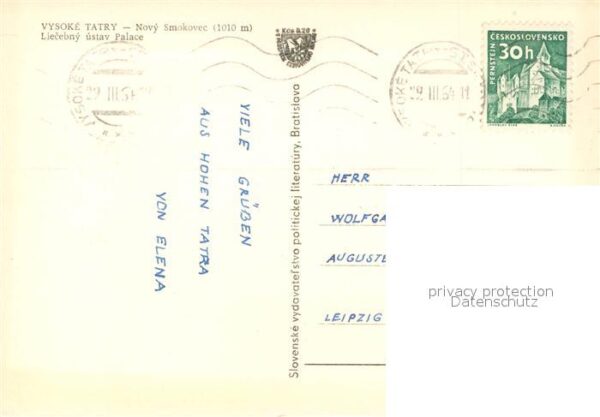 VYSOKÉ TATRY — Nový Smokovec (1010 m)
Liečebný ústav Palace
Kčs 0.20
VYSOKÉ TATRY
29. III. 64
VYSOKÉ TATRY
29. III. 64-11
ČESKOSLOVENSKO
30h
PERNŠTEJN
VIELE GRÜßEN
AUS HOHEN TATRA
VON ELENA
Slovenské vydavateľstvo politickej literatúry, Bratislava
HERR
WOLFGA
AUGUSTE
LEIPZIG
privacy protection
Datenschutz